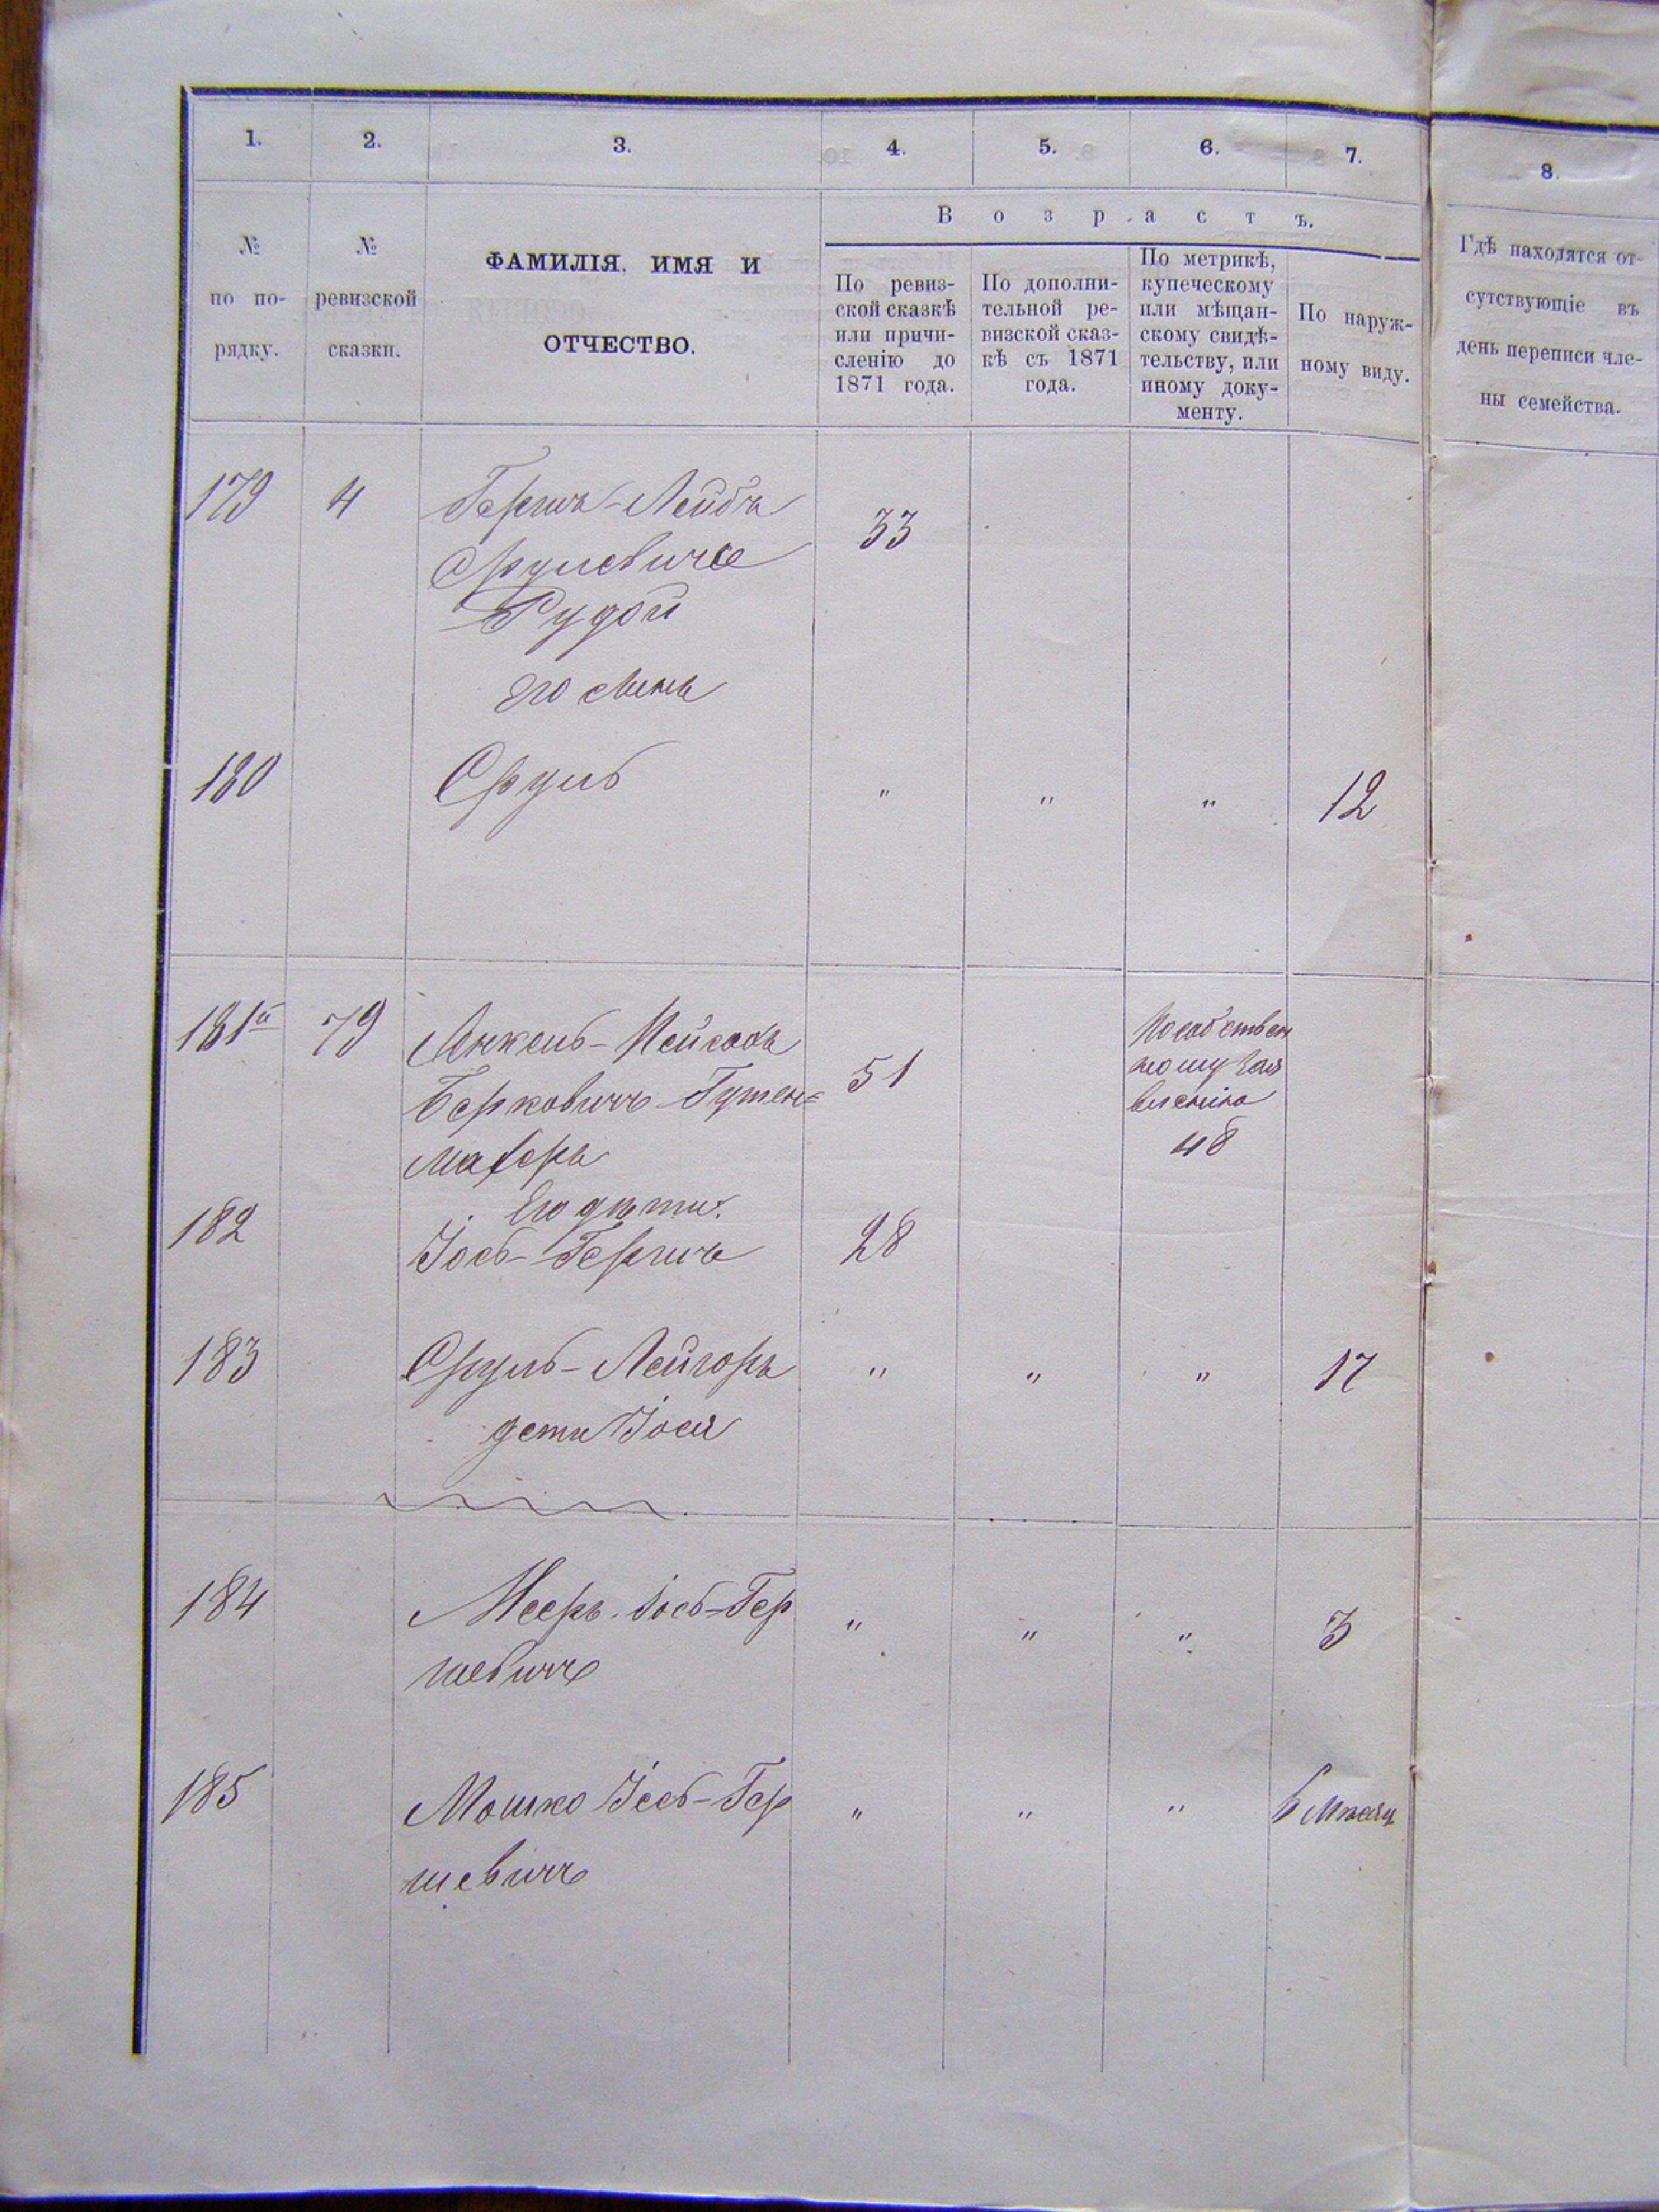 1. 2. 3. 4. 5. 6. 7. 8.
В о з р а с т ъ.
№ по по- рядку.
№ ревизской сказки.
ФАМИЛІЯ, ИМЯ И
ОТЧЕСТВО.
По ревиз-
ской сказкѣ
или причи-
сленію до
1871 года.
По дополни-
тельной ре-
визской сказ-
кѣ съ 1871
года.
По метрикѣ,
купеческому
или мѣщан-
скому свидѣ-
тельству, или
иному доку-
менту.
По наруж-
ному виду.
Гдѣ находятся от-
сутствующіе въ
день переписи чле-
ны семейства.
179 4 Гершъ-Лейба 33
Срулевичъ
Рудой
его сынъ
180 Сруль " " " 12
181й 79 Янкель-Пейсахъ 51
Берковичъ Гутен=
махеръ
По собствен
ному заяв
вленію
48
его дѣти:
182 Іось-Гершъ 28
183 Сруль-Лейзоръ " " " 17
дети Іося
184 Мееръ Іось-Гер " " " 3
шевичъ
185 Мошко Іось-Гер " " " 6 месяц
шевичъ